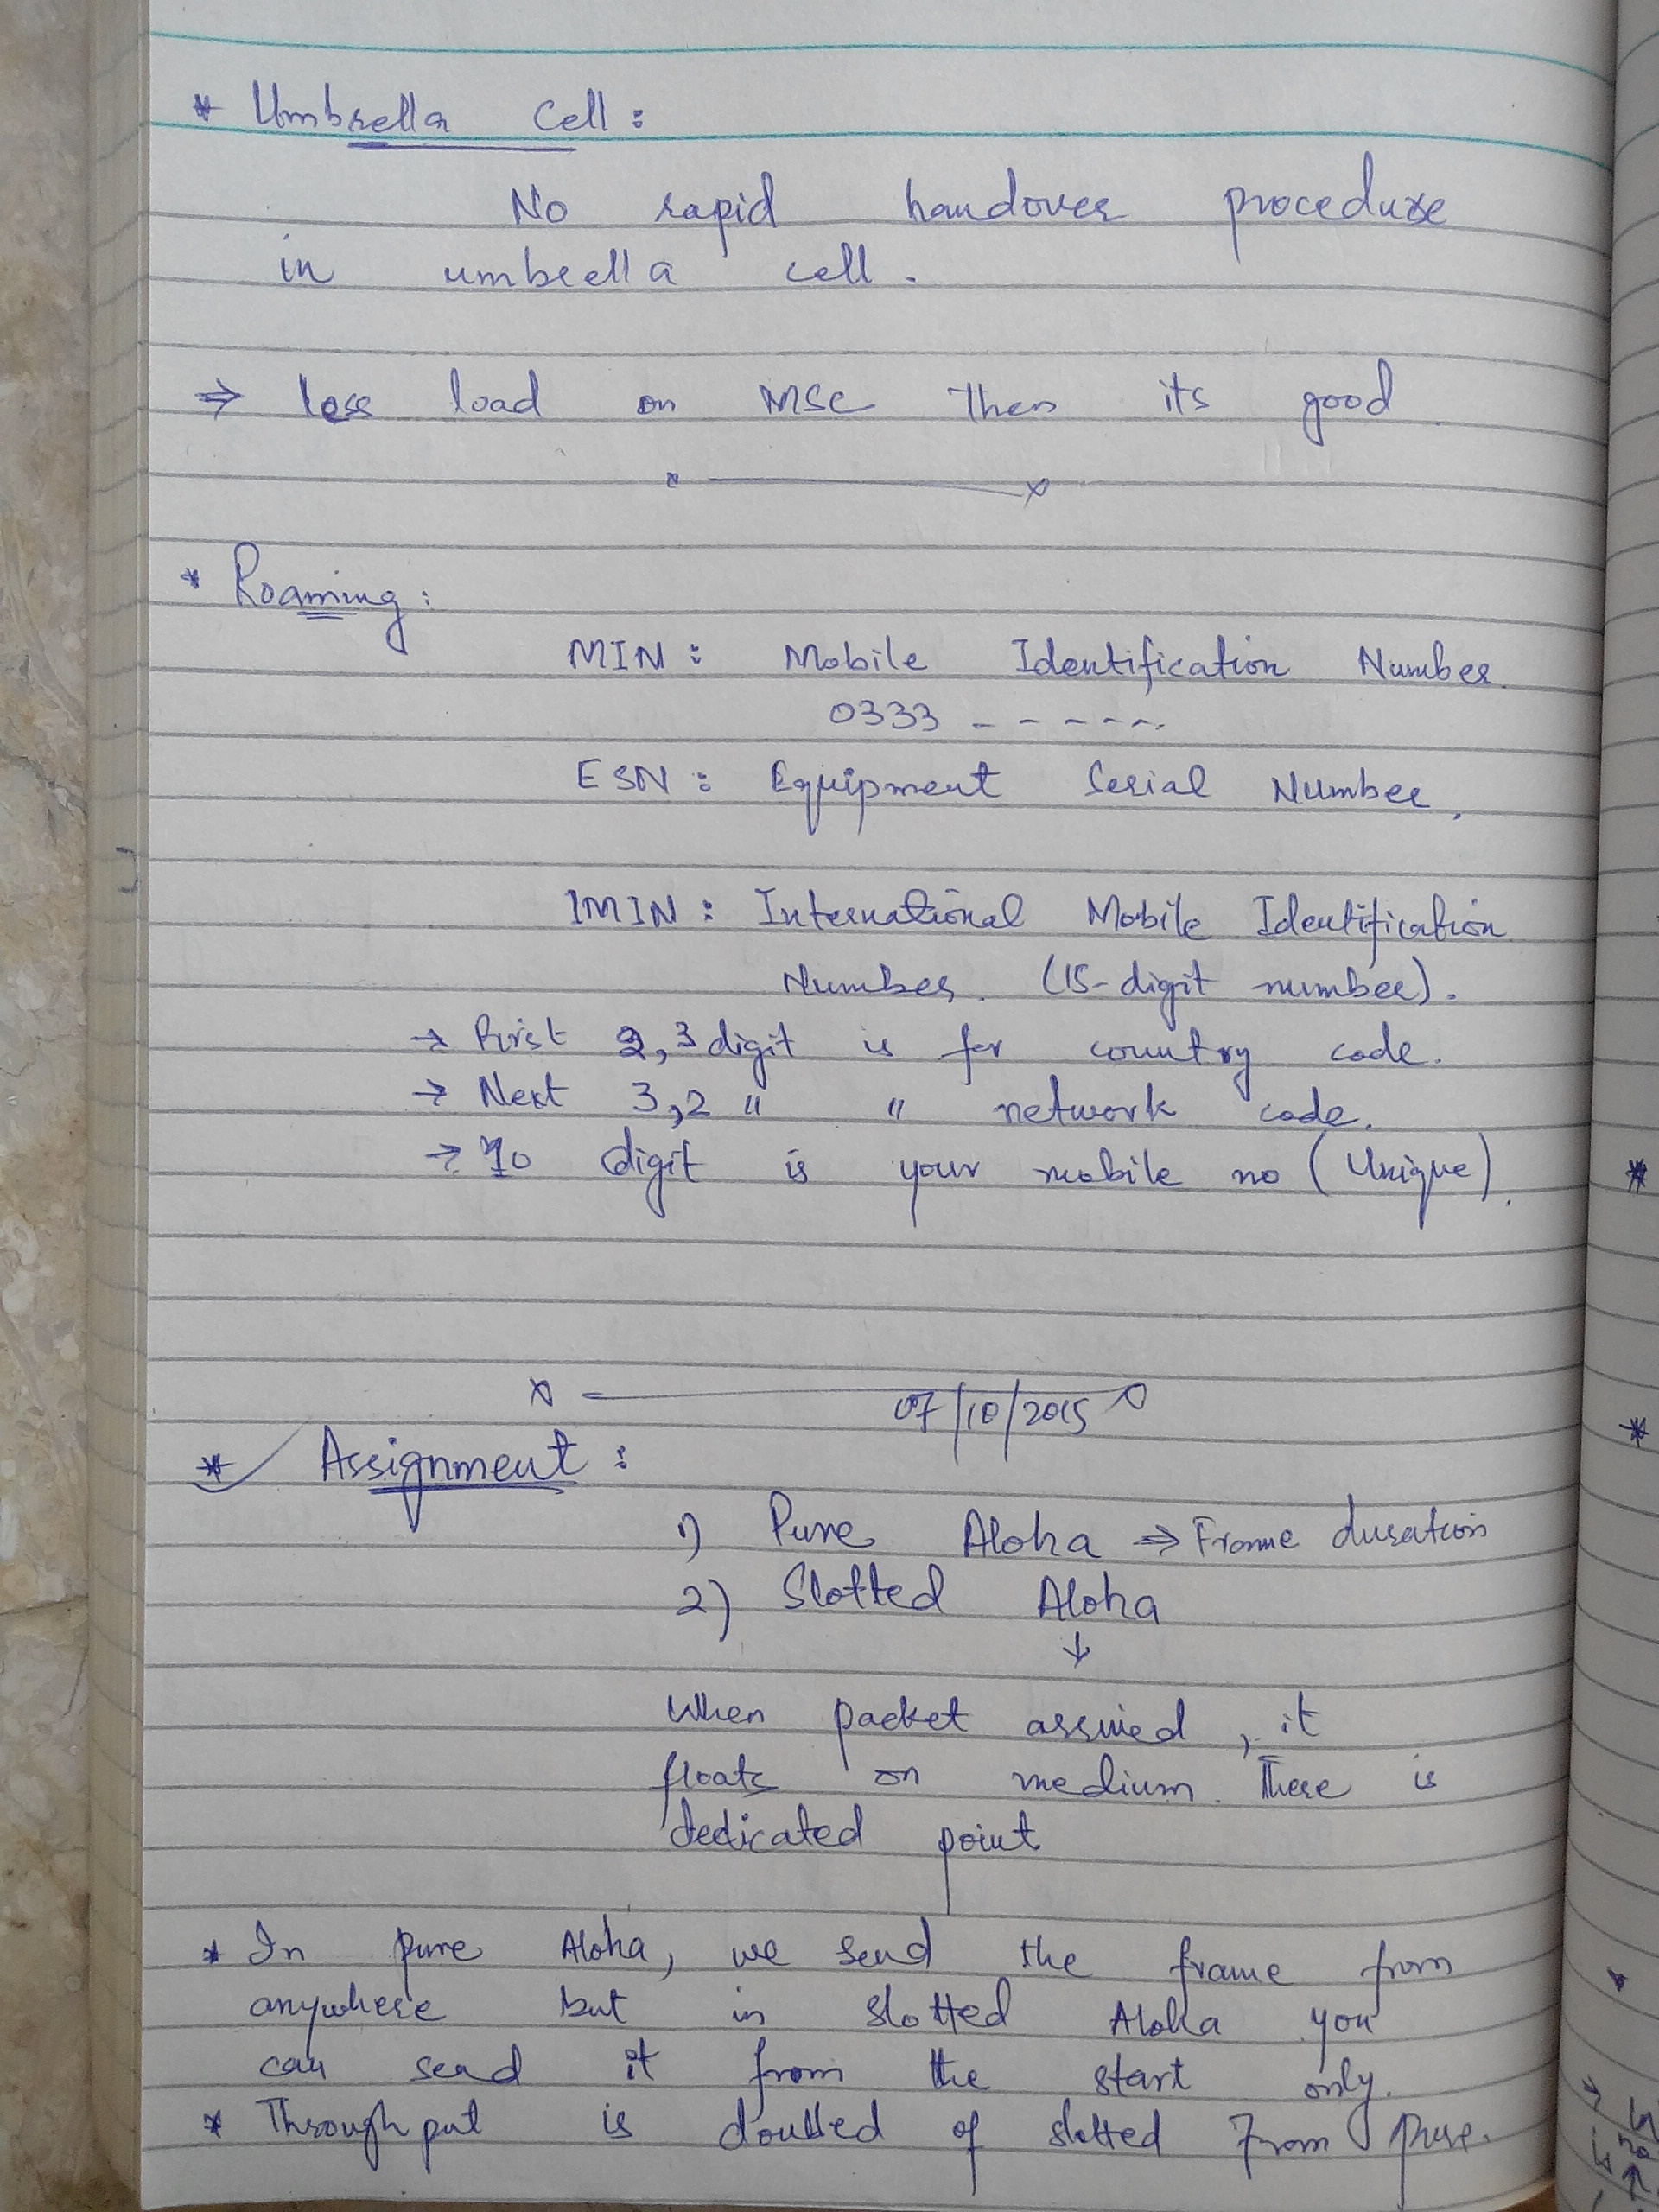 * Umbrella Cell :
No rapid handover procedure
in umbrella cell.
⇒ less load on MSC then its good
x ——— x
* Roaming :
MIN : Mobile Identification Number.
0333 - - - - - -
ESN : Equipment Serial Number.
IMIN : International Mobile Identification
Number. (15-digit number).
→ First 2,3 digit is for country code.
→ Next 3,2 " " network code.
→ 10 digit is your mobile no (Unique).
x ———
07/10/2015
* Assignment :
1) Pure Aloha ⇒ Frame duration
2) Slotted Aloha
↓
When packet arrived, it
floats on medium. There is
dedicated point
* In pure Aloha, we send the frame from
anywhere but in slotted Aloha you
can send it from the start only.
* Throughput is doubled of slotted from pure.